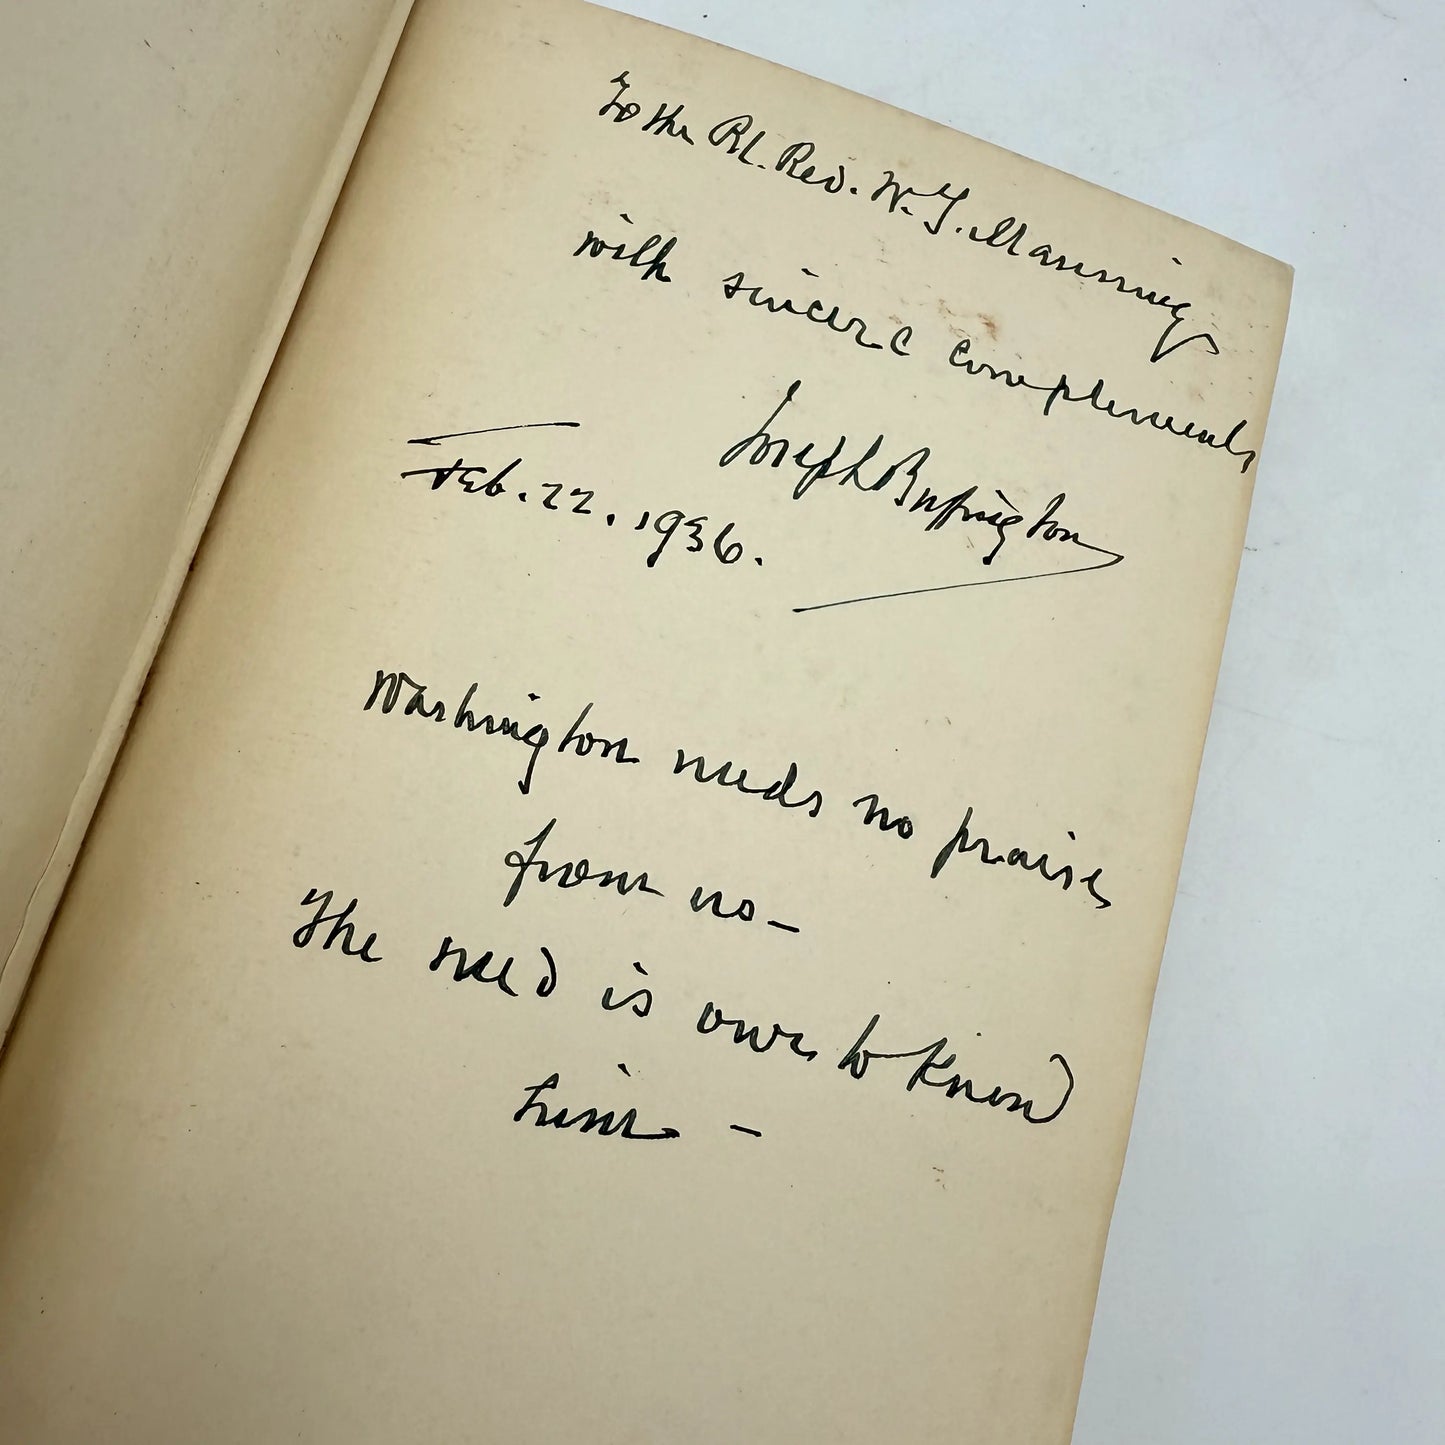 To the Rt. Rev. W. T. Manning
with sincere compliments
Joseph Buffington
Feb. 22. 1936.
Washington needs no praise
from us –
The need is ours to know
him –